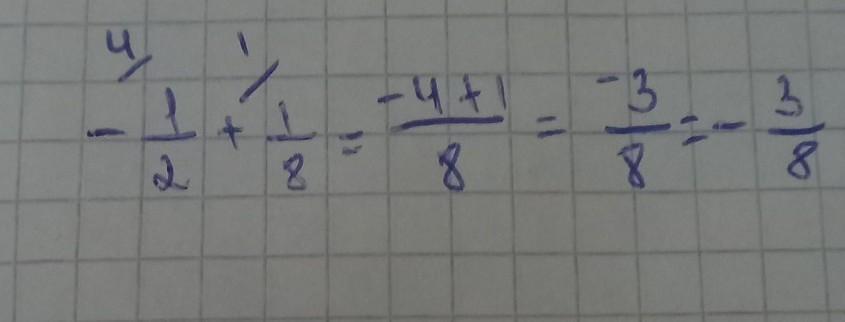 4/ 1/
- 1/2 + 1/8 = -4+1/8 = -3/8 = - 3/8